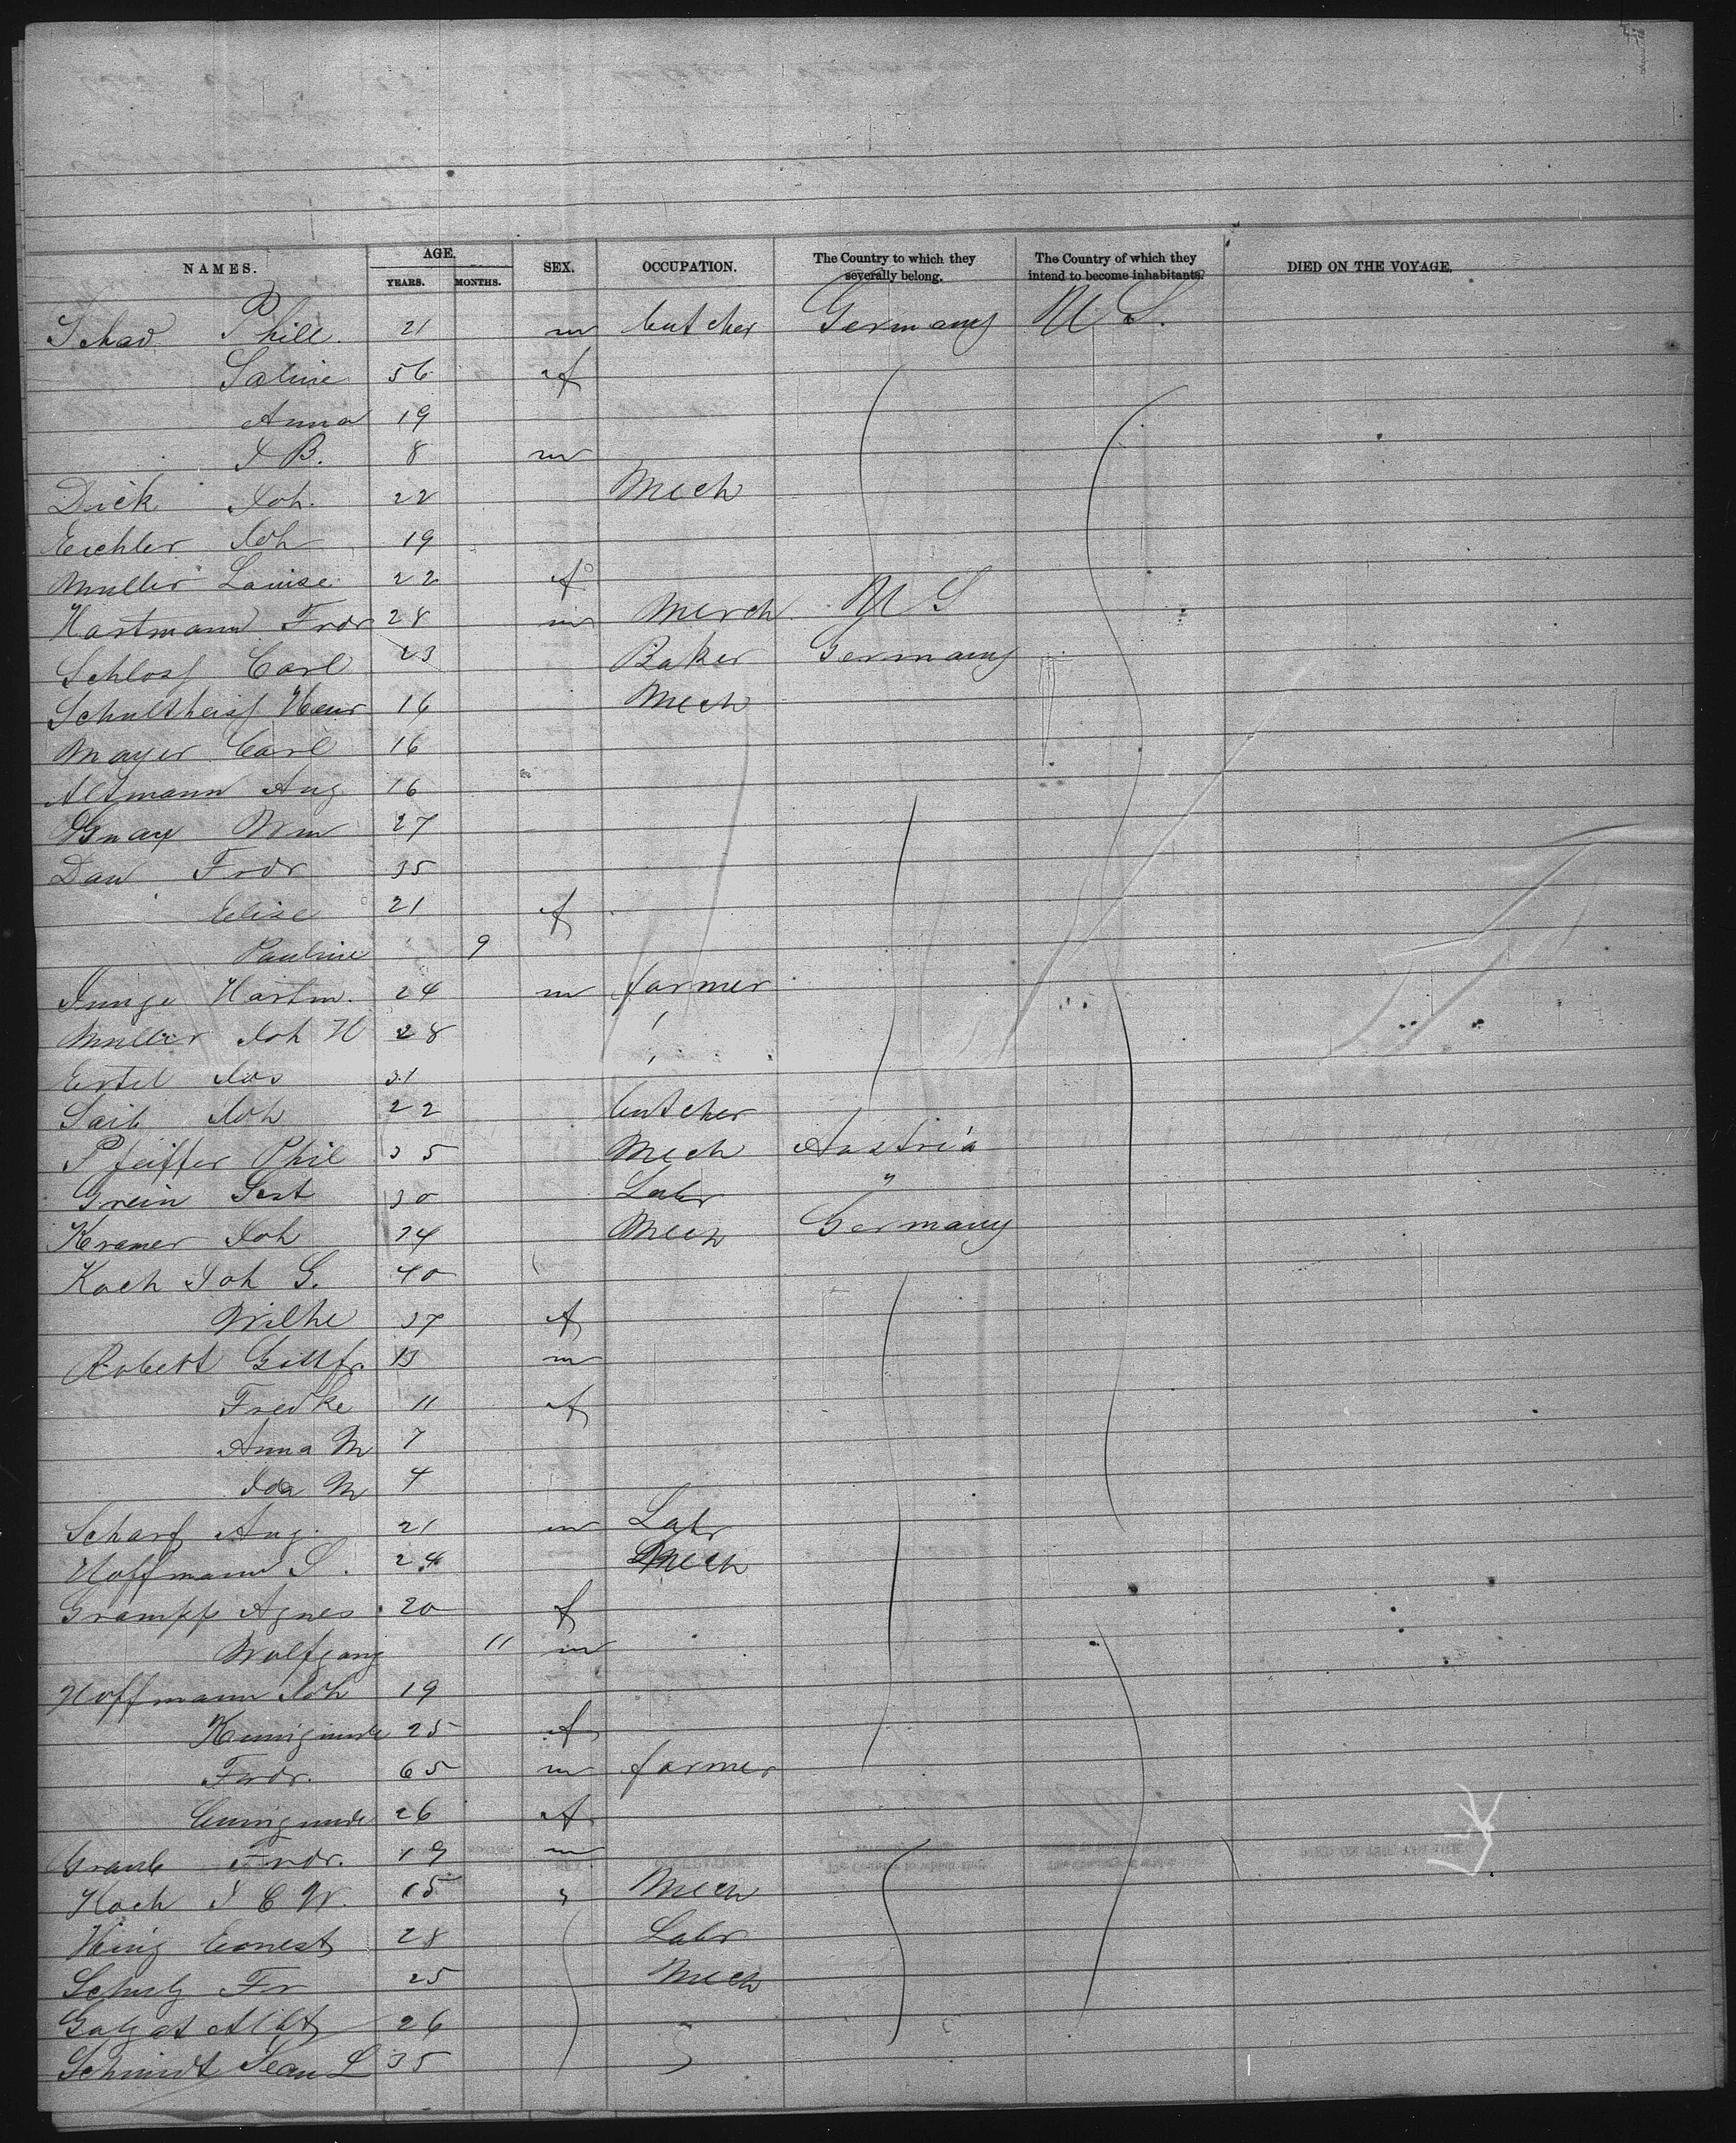 NAMES. AGE. YEARS. MONTHS. SEX. OCCUPATION. The Country to which they severally belong. The Country of which they intend to become inhabitants. DIED ON THE VOYAGE.
Schad Phill. 21 m butcher Germany U S.
Saline 56 f
Anna 19
J B. 8 m
Dick Joh. 22 Mech
Eichler Joh 19
Muller Louise 22 f
Hartmann Frdr 28 m Merch U S
Schloss Carl 23 Baker Germany
Schultheiss Heinr 16 Mech
Mayer Carl 16
Altmann Aug 16
Wm 27
Dau Frdr 35
Elise 21 f
Pauline 9
Junge Hartm. 24 m farmer
Muller Joh H 28 "
Ertel Jos 31 "
Saib Joh 22 butcher
Pfeiffer Phil 35 Mech Austria
Grein 30 Labr "
Kramer Joh 24 Mech Germany
Koch Joh G. 40
Wilhe 37 f
Robert Gottfr. 13 m
Fredke 11 f
Anna M 7
Ida M 4
Scharf Aug. 21 m Labr
Hoffmann S. 24 Mech
Grampp Agnes 20 f
Wolfgang 11 m
Hoffmann Joh 19
Kunigunde 25 f
Frdr. 65 m farmer
Cunigunde 26 f
Fredr. 19 m
Koch J C W. 15 " Mech
Ernest 28 Labr
Schulz Fr 25 Mech
Albt 26
Schmidt Jean L 35